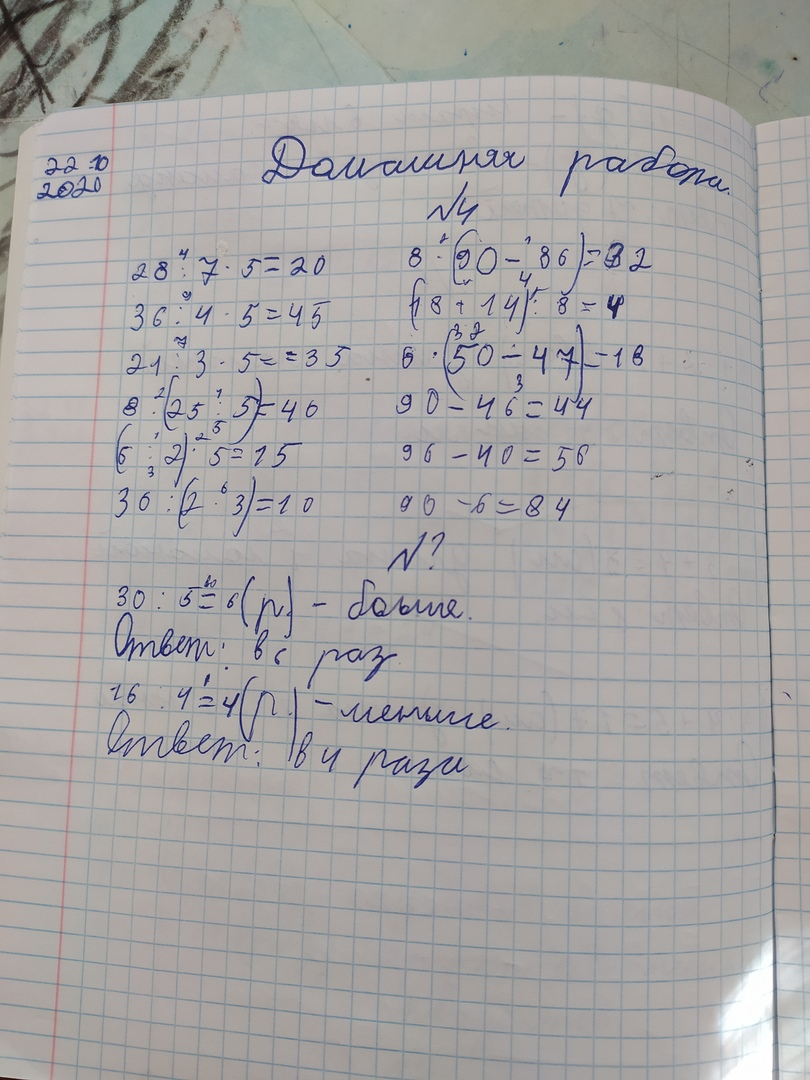 22 10
2020
Домашняя работа.
N4
28 : 7 · 5 = 20
36 : 4 · 5 = 45
21 : 3 · 5 = = 35
8 · (25 : 5) = 40
(6 : 2) · 5 = 15
30 : (2 · 3) = 10
8 · (90 - 86) = 32
(18 + 14) : 8 = 4
6 · (50 - 47) = 18
90 - 46 = 44
96 - 40 = 56
90 - 6 = 84
N?
30 : 5 = 6 (р) - больше.
Ответ: в 6 раз
16 : 4 = 4 (р.) - меньше.
Ответ: в 4 раза